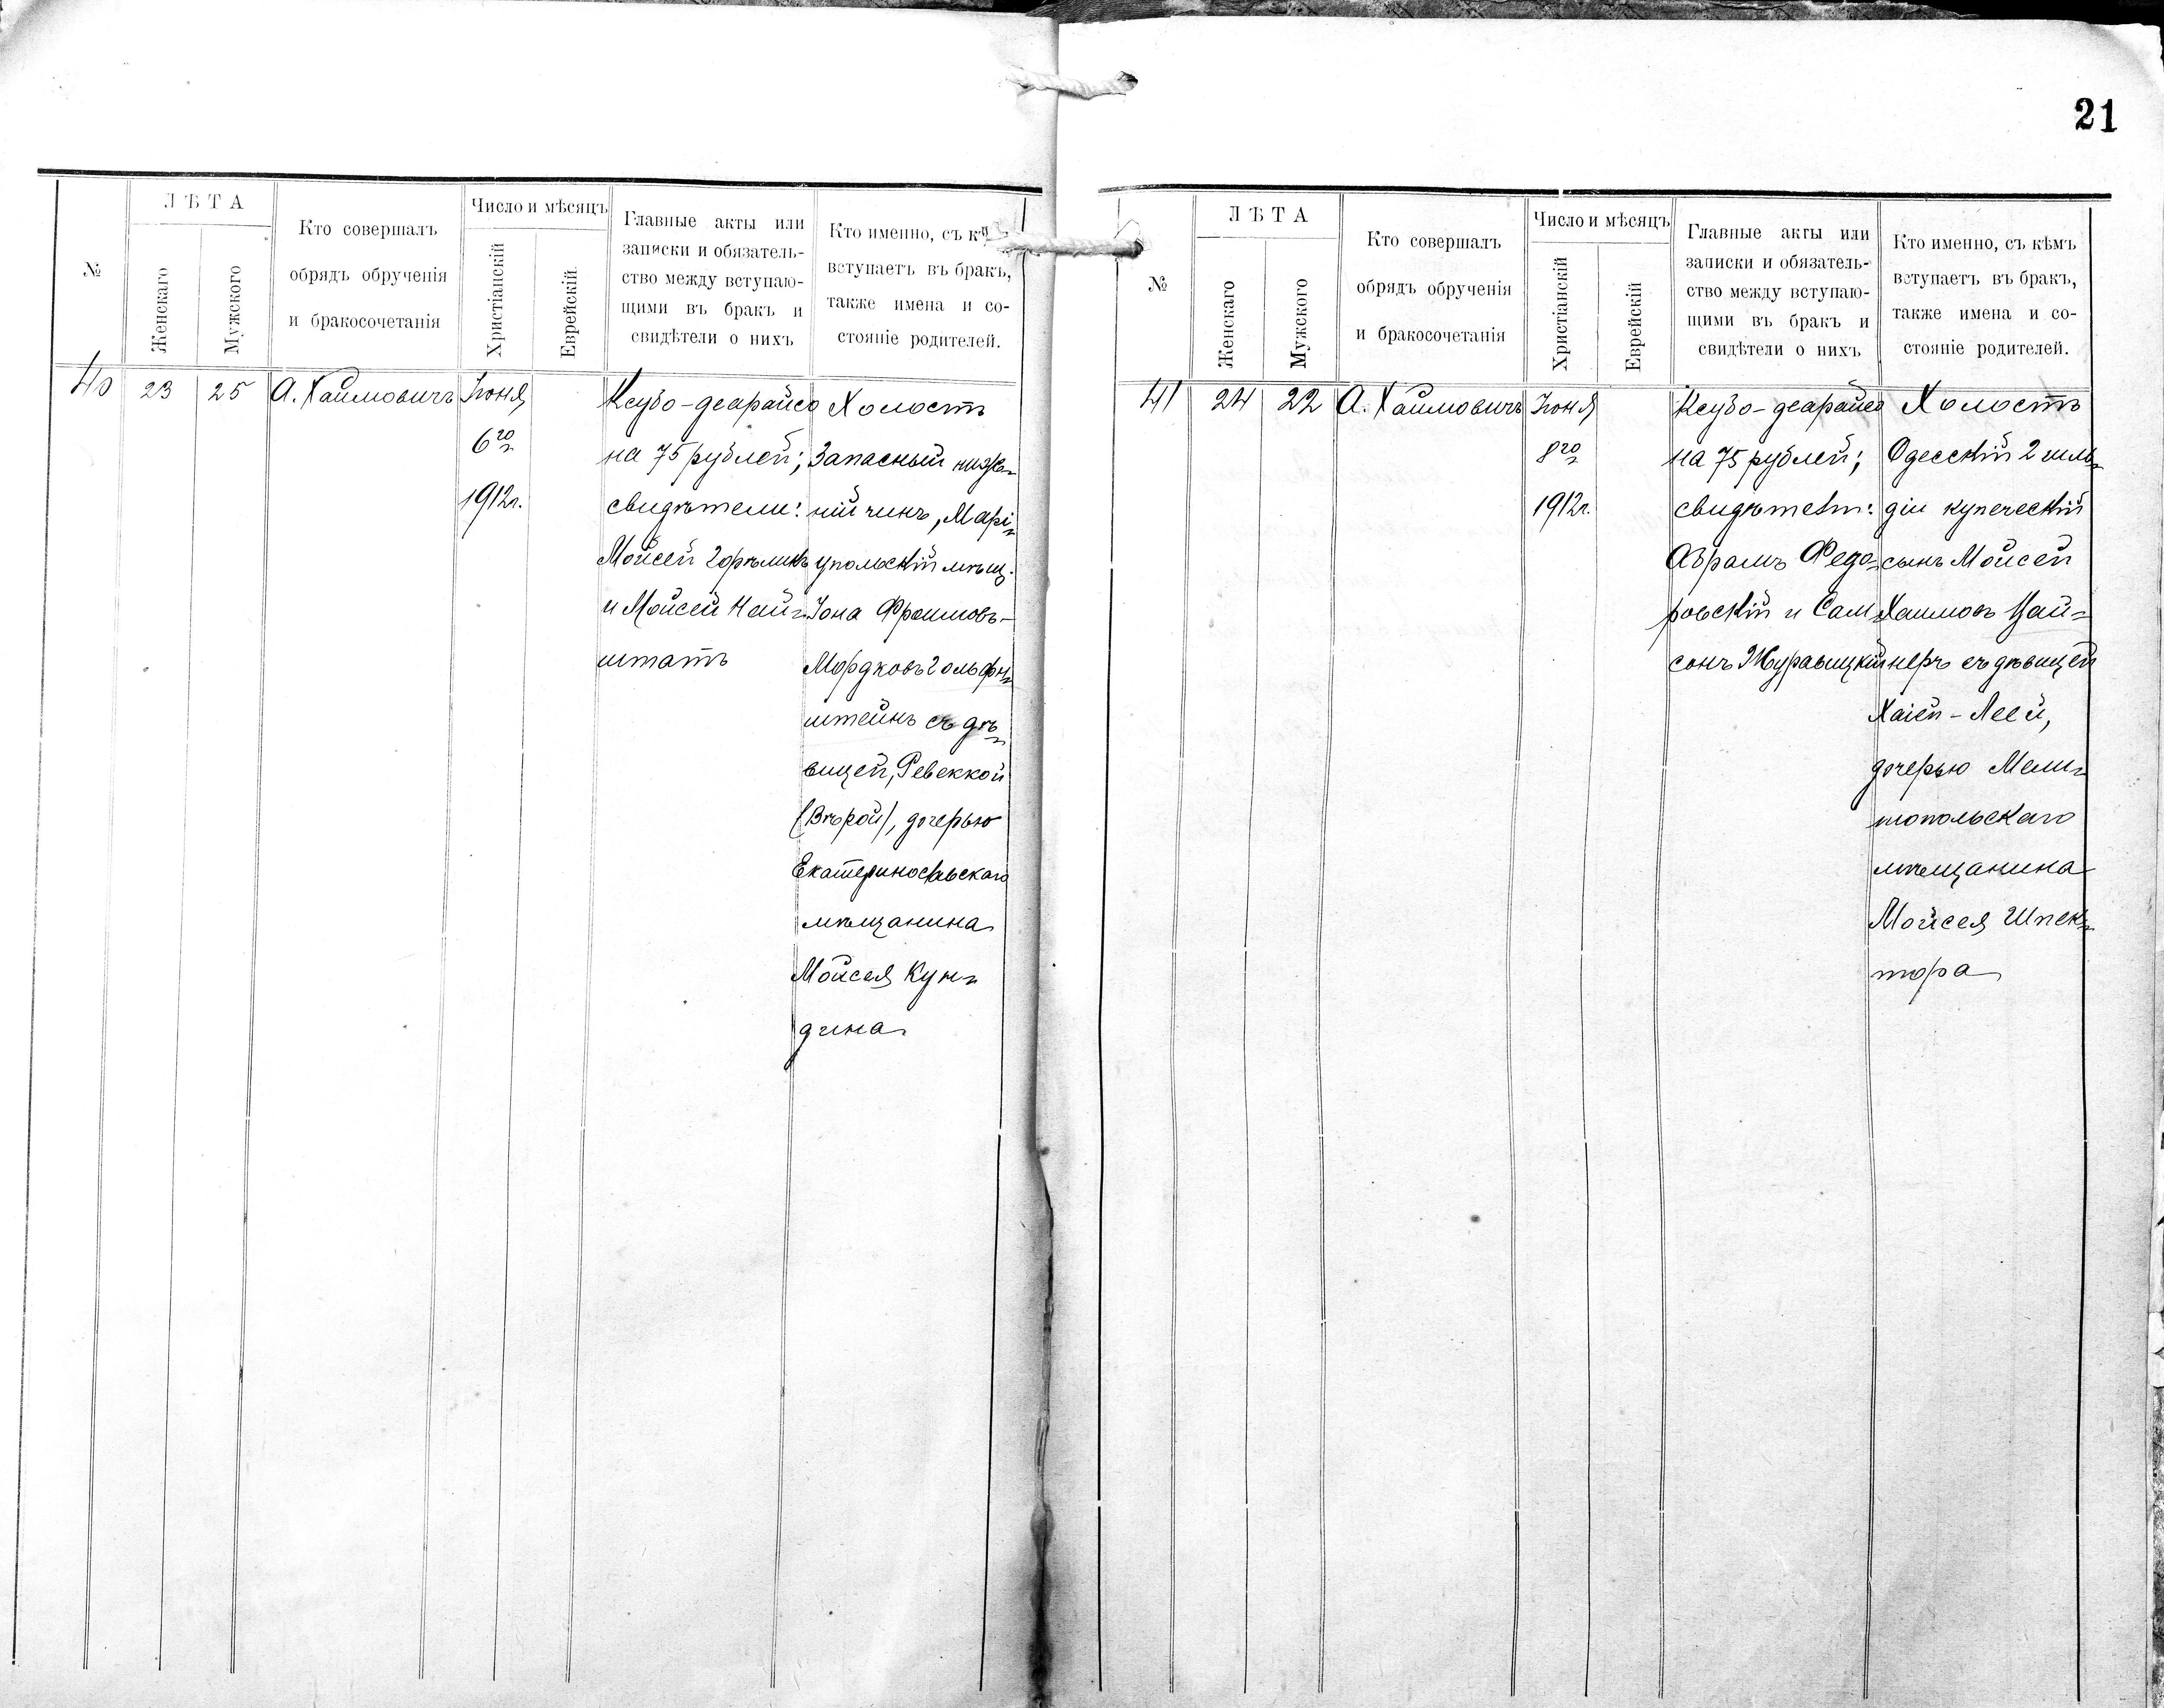 №
ЛѢТА
Женскаго
Мужского
Кто совершалъ
обрядъ обрученія
и бракосочетанія
Число и мѣсяцъ
Христіанскій
Еврейскій
Главные акты или
записки и обязатель-
ство между вступаю-
щими въ бракъ и
свидѣтели о нихъ
Кто именно, съ
вступаетъ въ бракъ,
также имена и со-
стояніе родителей.
40
23
25
А. Хаимовичъ
Іюня
6го
1912г.
Ксубо-деарайсо
на 75 рублей;
свидѣтели:
Мойсей
и Мойсей Най-
штатъ
Холостъ
Запасный ниж-
ній чинъ, Марі-
упольскій мѣщ.
Іона Фроимовъ-
Мордковъ Гольфн-
штейнъ съ дѣ-
вицей, Ревеккой
(Вѣрой), дочерью
Екатеринославскаго
мѣщанина
Мойсея Кун-
дина
21
№
ЛѢТА
Женскаго
Мужского
Кто совершалъ
обрядъ обрученія
и бракосочетанія
Число и мѣсяцъ
Христіанскій
Еврейскій
Главные акты или
записки и обязатель-
ство между вступаю-
щими въ бракъ и
свидѣтели о нихъ
Кто именно, съ кѣмъ
вступаетъ въ бракъ,
также имена и со-
стояніе родителей.
41
24
22
А. Хаимовичъ
Іюня
8го
1912г.
Ксубо-деарайсо
на 75 рублей;
свидѣтели:
Абрамъ Федо-
ровскій и Сам-
сонъ Журавицкій
Холостъ
Одесскій 2 гиль-
діи купеческій
сынъ Мойсей
Хаимовъ Цай-
неръ съ дѣвицей
Хаіей-Леей,
дочерью Мели-
топольскаго
мѣщанина
Мойсея Шпек-
тора